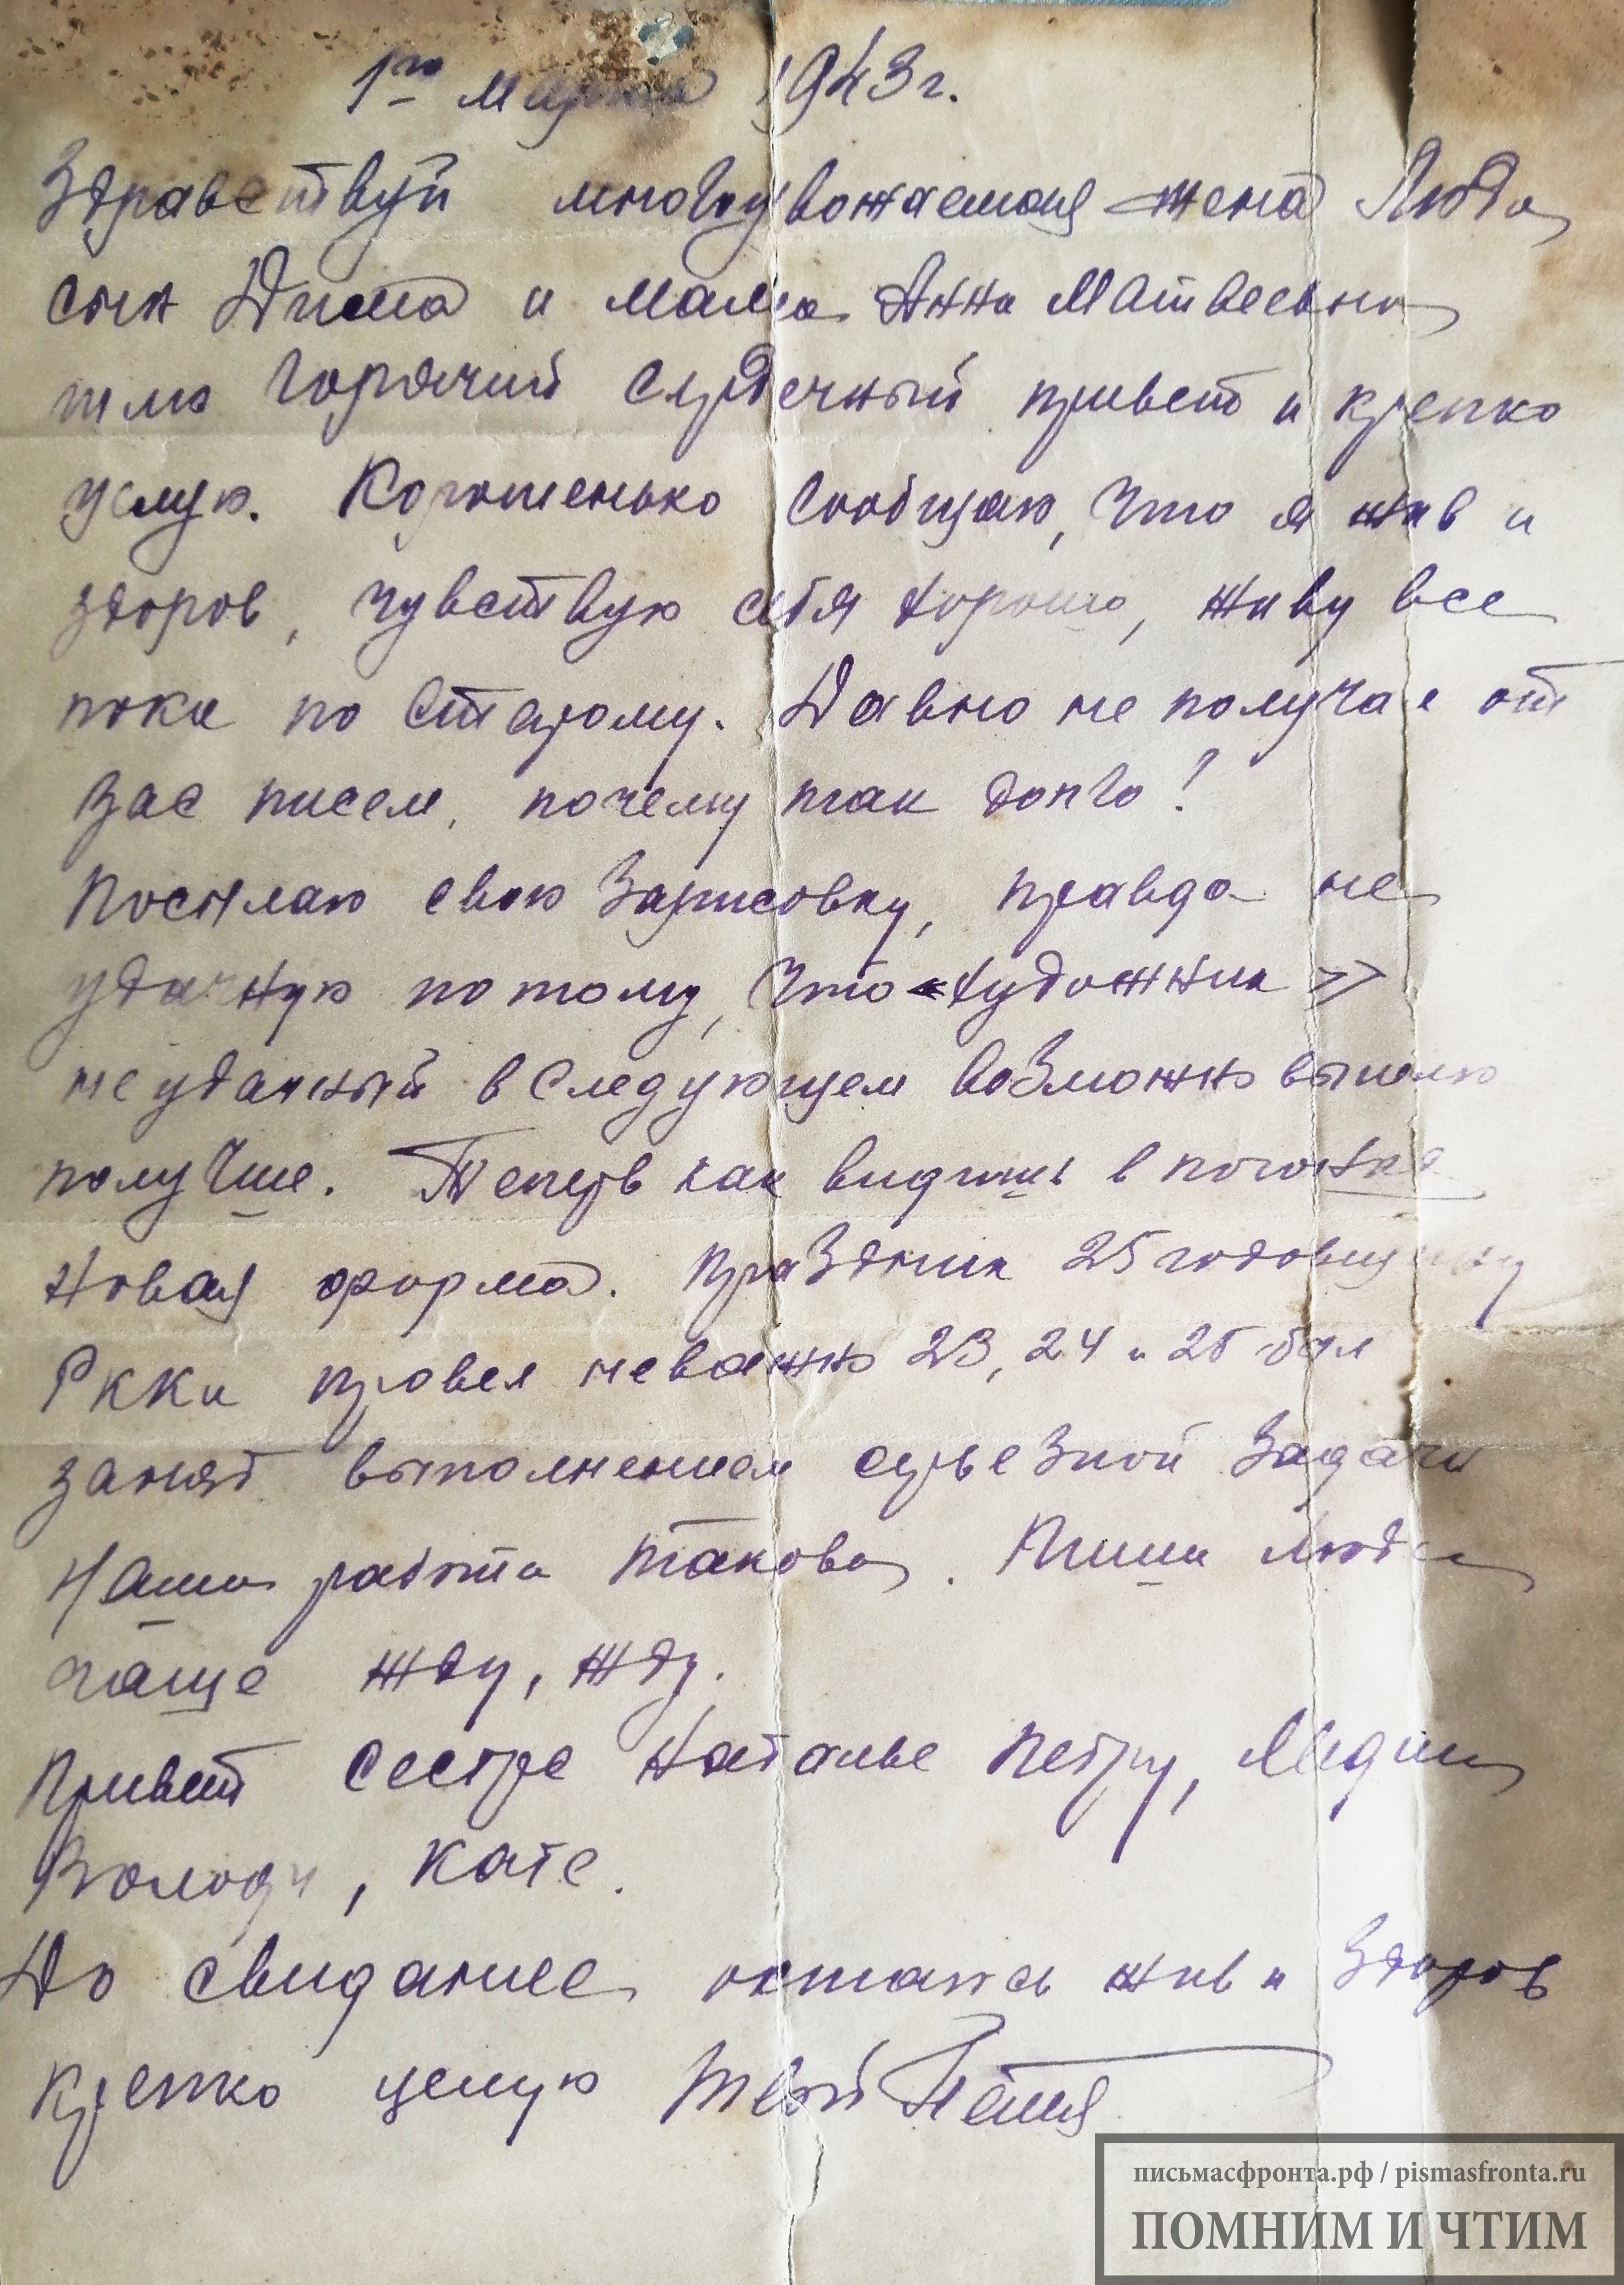 1го Марта 1943 г.
Здравствуй многоуважаемая жена Люда,
сын Дима и мама Анна Матвеевна
шлю горячий сердечный привет и крепко
целую. Хорошенько сообщаю, что я жив и
здоров, чувствую себя хорошо, живу все
пока по старому. Давно не получаю от
Вас писем, почему так долго!
Посылаю свою зарисовку, правда не
удачную потому, что «художник»
неудачный в следующем возможно вышлю
получше. Теперь как видишь в погонах
новая форма. Праздник 25 годовщину
РККА провел неважно 23, 24 и 25 был
занят выполнением серьезной задачи
Наша работа такова. Пиши Люда
чаще жду, жду.
Привет сестре Наталье Петру, Лидии
Володи, Кате.
До свидание остаюсь жив и здоров
Крепко целую Твой Петя
письмасфронта.рф / pismasfronta.ru
ПОМНИМ И ЧТИМ